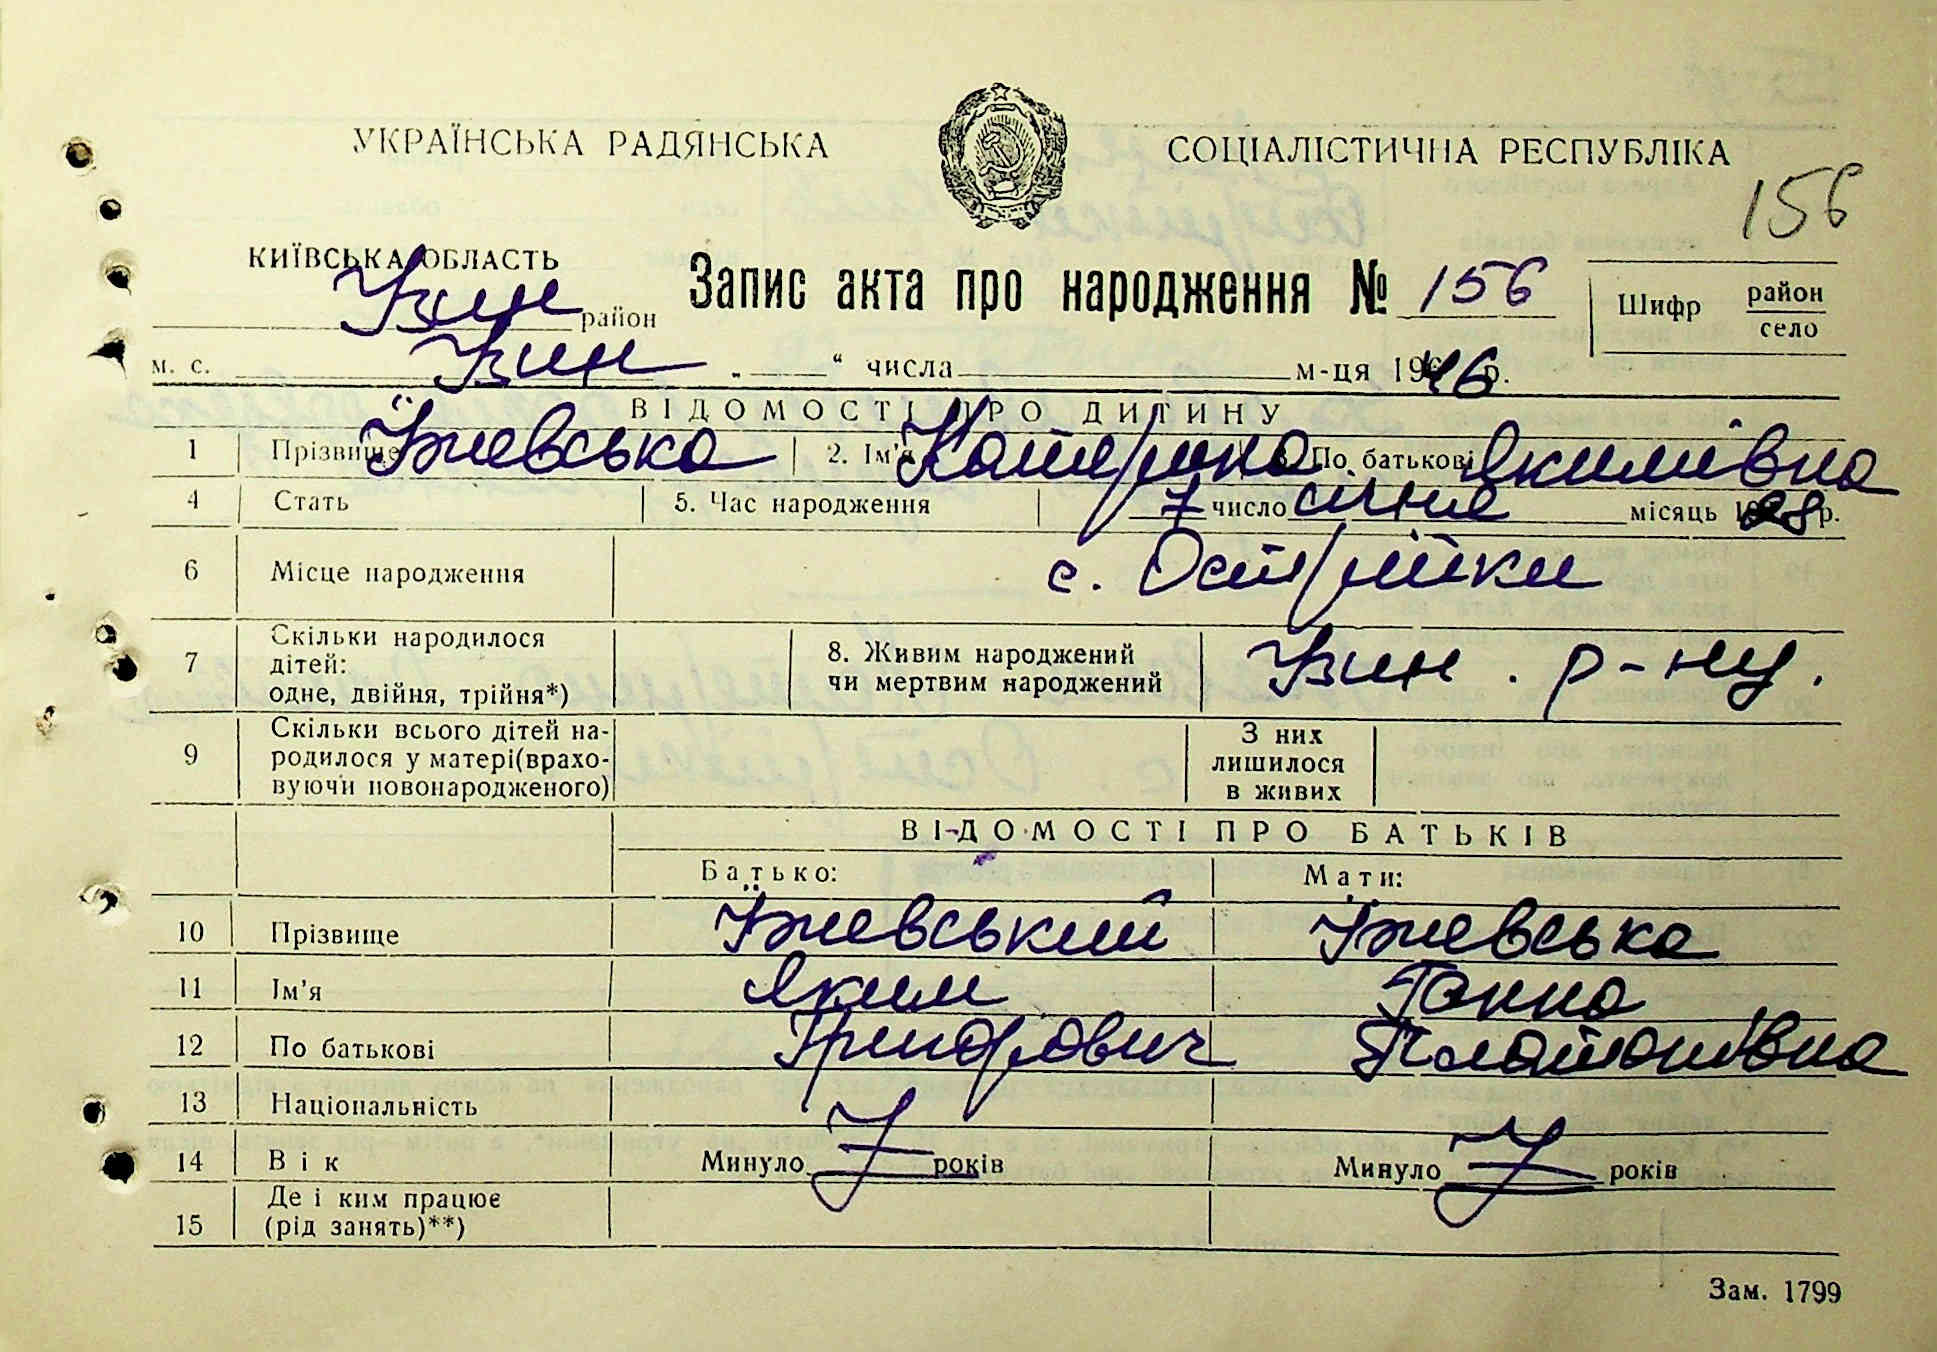 УКРАЇНСЬКА РАДЯНСЬКА СОЦІАЛІСТИЧНА РЕСПУБЛІКА
156
КИЇВСЬКА ОБЛАСТЬ
Узин район
Запис акта про народження № 156
Шифр район село
м. с. Узин „ “ числа м-ця 1946 р.
ВІДОМОСТІ ПРО ДИТИНУ
1 Прізвище Їжевська 2. Ім'я Катерина 3. По батькові Якимівна
4 Стать 5. Час народження 7 число січня місяць 1928 р.
6 Місце народження с. Острійки
7 Скільки народилося дітей: одне, двійня, трійня*) 8. Живим народжений чи мертвим народжений Узин. р-ну.
9 Скільки всього дітей народилося у матері(враховуючи новонародженого) З них лишилося в живих
ВІДОМОСТІ ПРО БАТЬКІВ
Батько: Мати:
10 Прізвище Їжевський Їжевська
11 Ім'я Яким Ганна
12 По батькові Григорович Платонівна
13 Національність У У
14 Вік Минуло років Минуло років
15 Де і ким працює (рід занять)**)
Зам. 1799